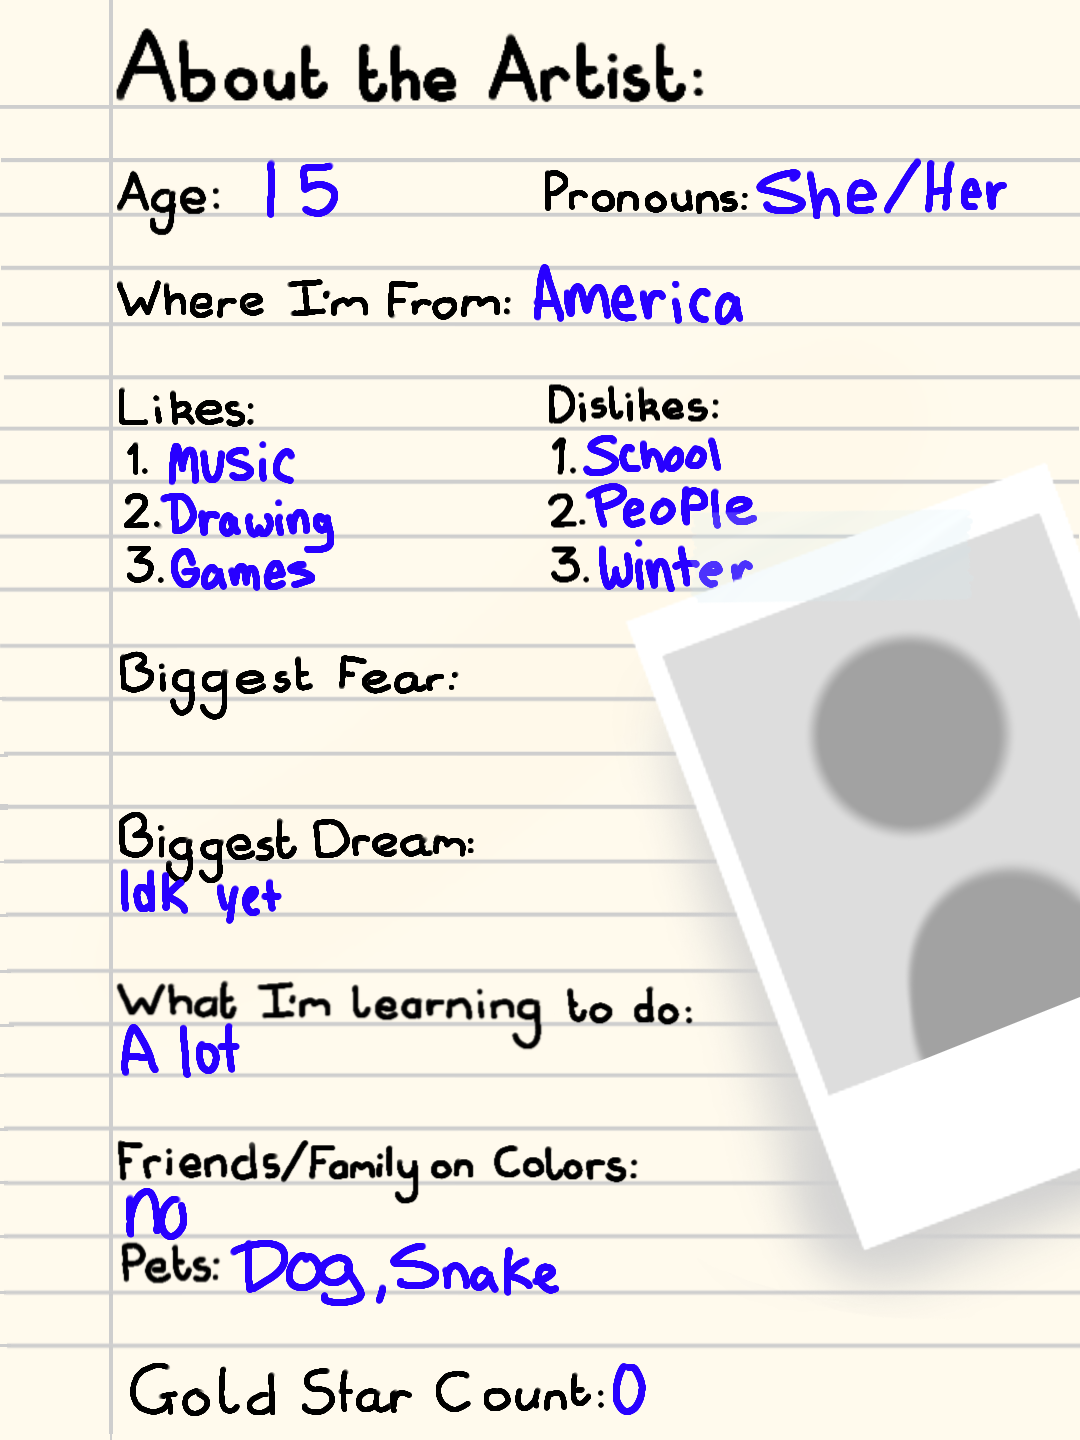 About the Artist:
Age: 15 Pronouns: She/Her
Where I'm From: America
Likes: Dislikes:
1. Music 1. School
2. Drawing 2. People
3. Games 3. Winter
Biggest Fear:
Biggest Dream:
Idk yet
What I'm learning to do:
A lot
Friends/Family on Colors:
no
Pets: Dog, Snake
Gold Star Count: 0